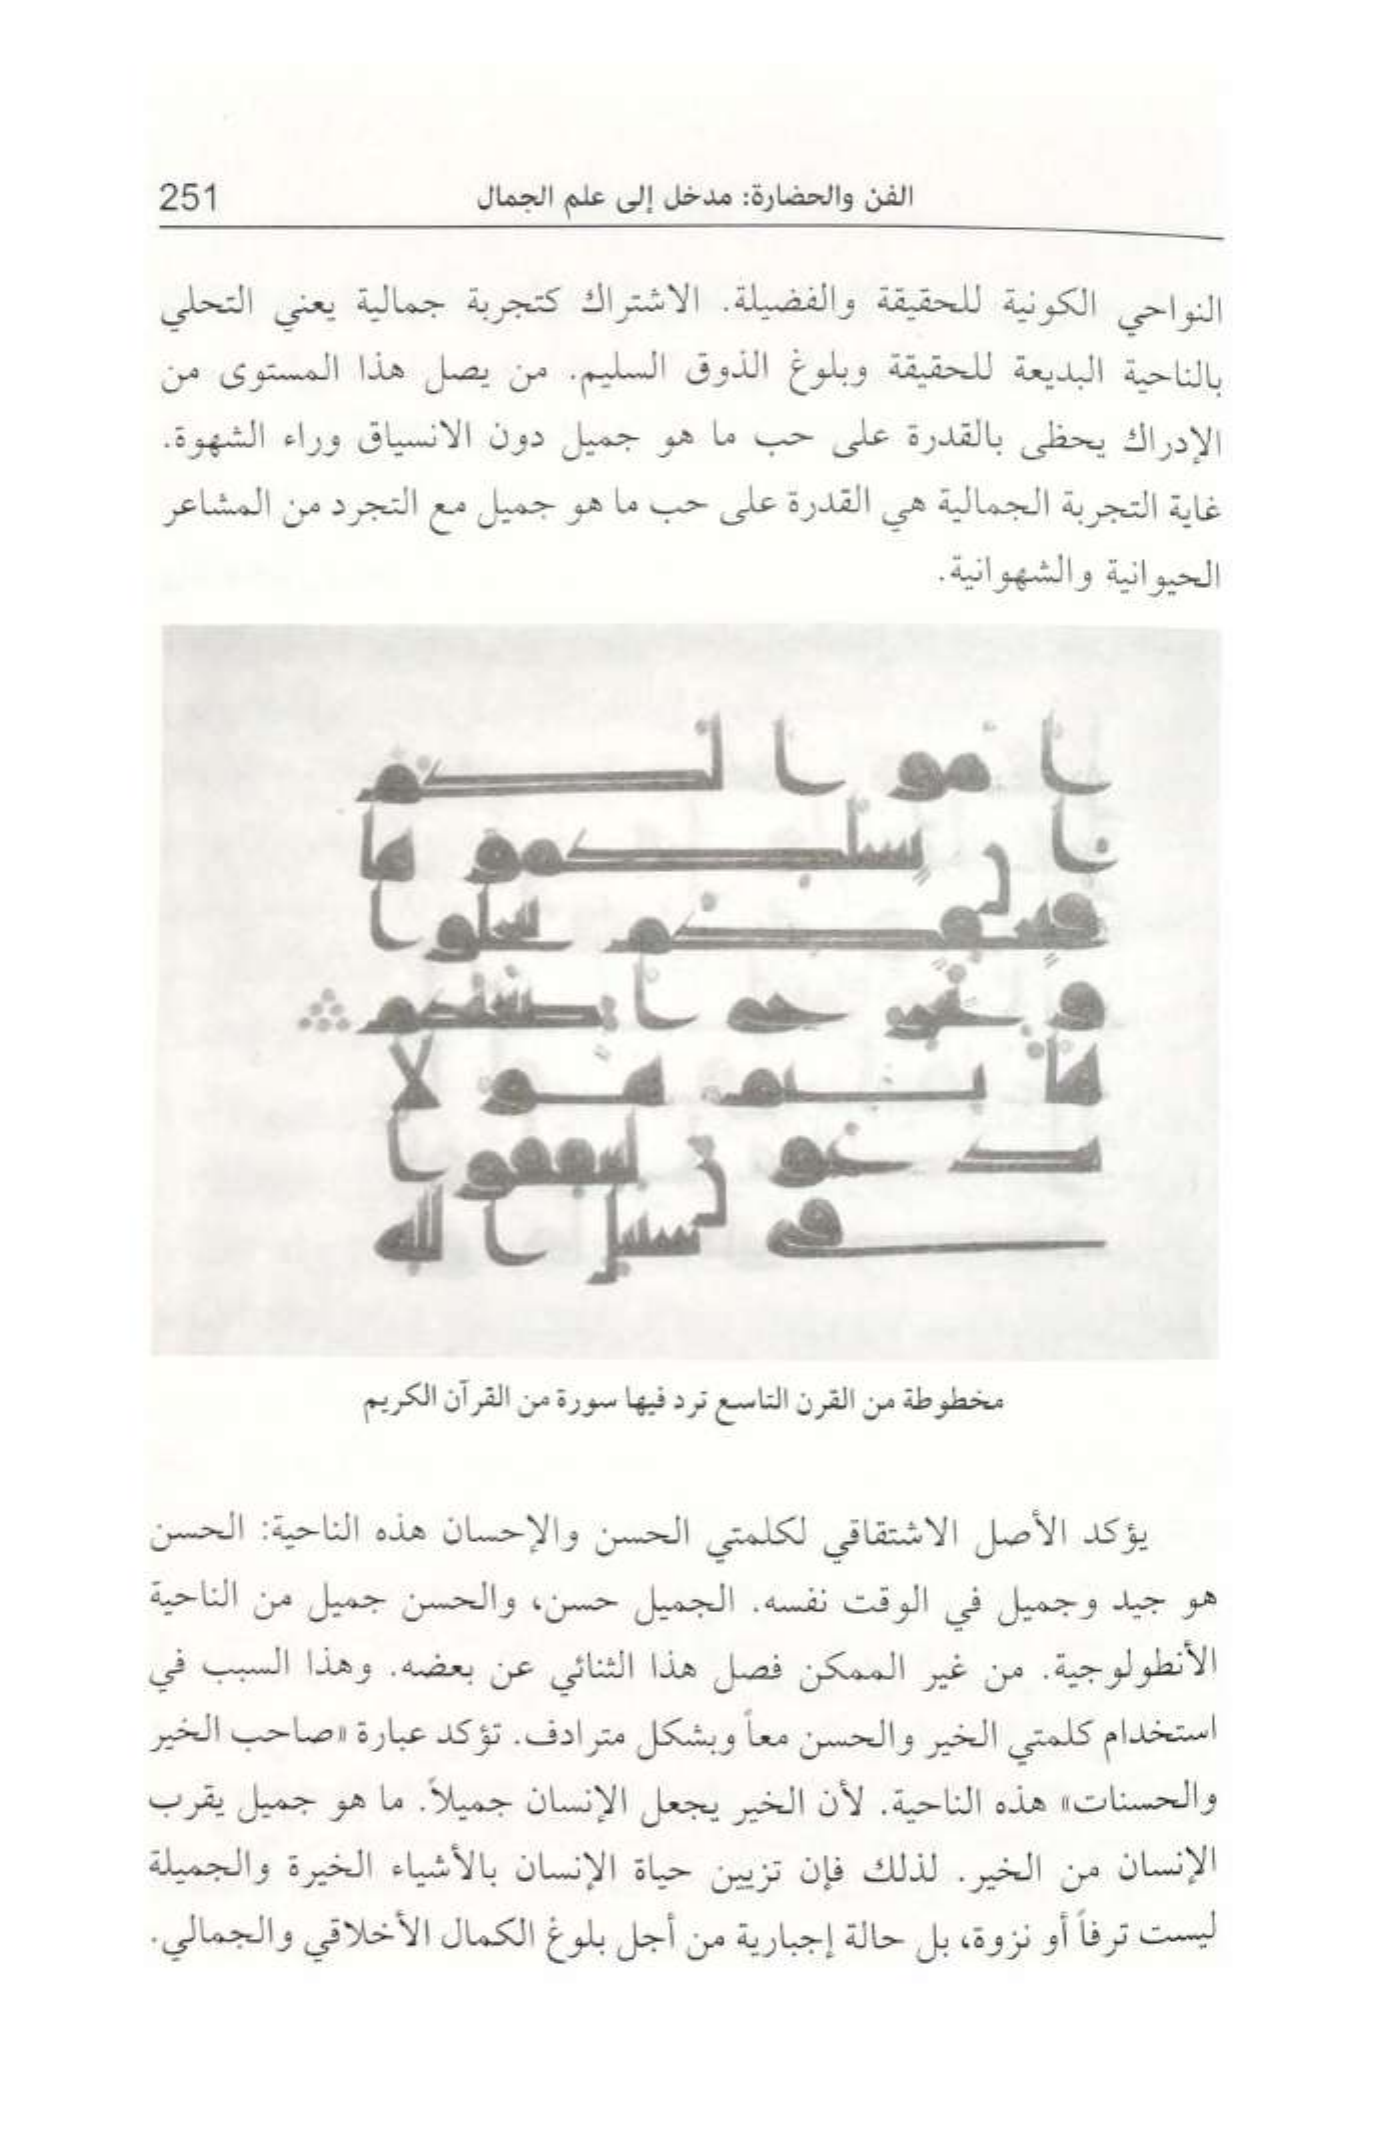 الفن والحضارة: مدخل إلى علم الجمال 251
النواحي الكونية للحقيقة والفضيلة. الاشتراك كتجربة جمالية يعني التحلي
بالناحية البديعة للحقيقة وبلوغ الذوق السليم. من يصل هذا المستوى من
الإدراك يحظى بالقدرة على حب ما هو جميل دون الانسياق وراء الشهوة.
غاية التجربة الجمالية هي القدرة على حب ما هو جميل مع التجرد من المشاعر
الحيوانية والشهوانية.
اموالكم
ان يسلكموها
فيحفكم تبخلوا
ويخرج اضغنكم
هانتم هولا
تدعون لتنفقوا
في سبيل الله
مخطوطة من القرن التاسع ترد فيها سورة من القرآن الكريم
يؤكد الأصل الاشتقاقي لكلمتي الحسن والإحسان هذه الناحية: الحسن
هو جيد وجميل في الوقت نفسه. الجميل حسن، والحسن جميل من الناحية
الأنطولوجية. من غير الممكن فصل هذا الثنائي عن بعضه. وهذا السبب في
استخدام كلمتي الخير والحسن معاً وبشكل مترادف. تؤكد عبارة «صاحب الخير
والحسنات» هذه الناحية. لأن الخير يجعل الإنسان جميلاً. ما هو جميل يقرب
الإنسان من الخير. لذلك فإن تزيين حياة الإنسان بالأشياء الخيرة والجميلة
ليست ترفاً أو نزوة، بل حالة إجبارية من أجل بلوغ الكمال الأخلاقي والجمالي.